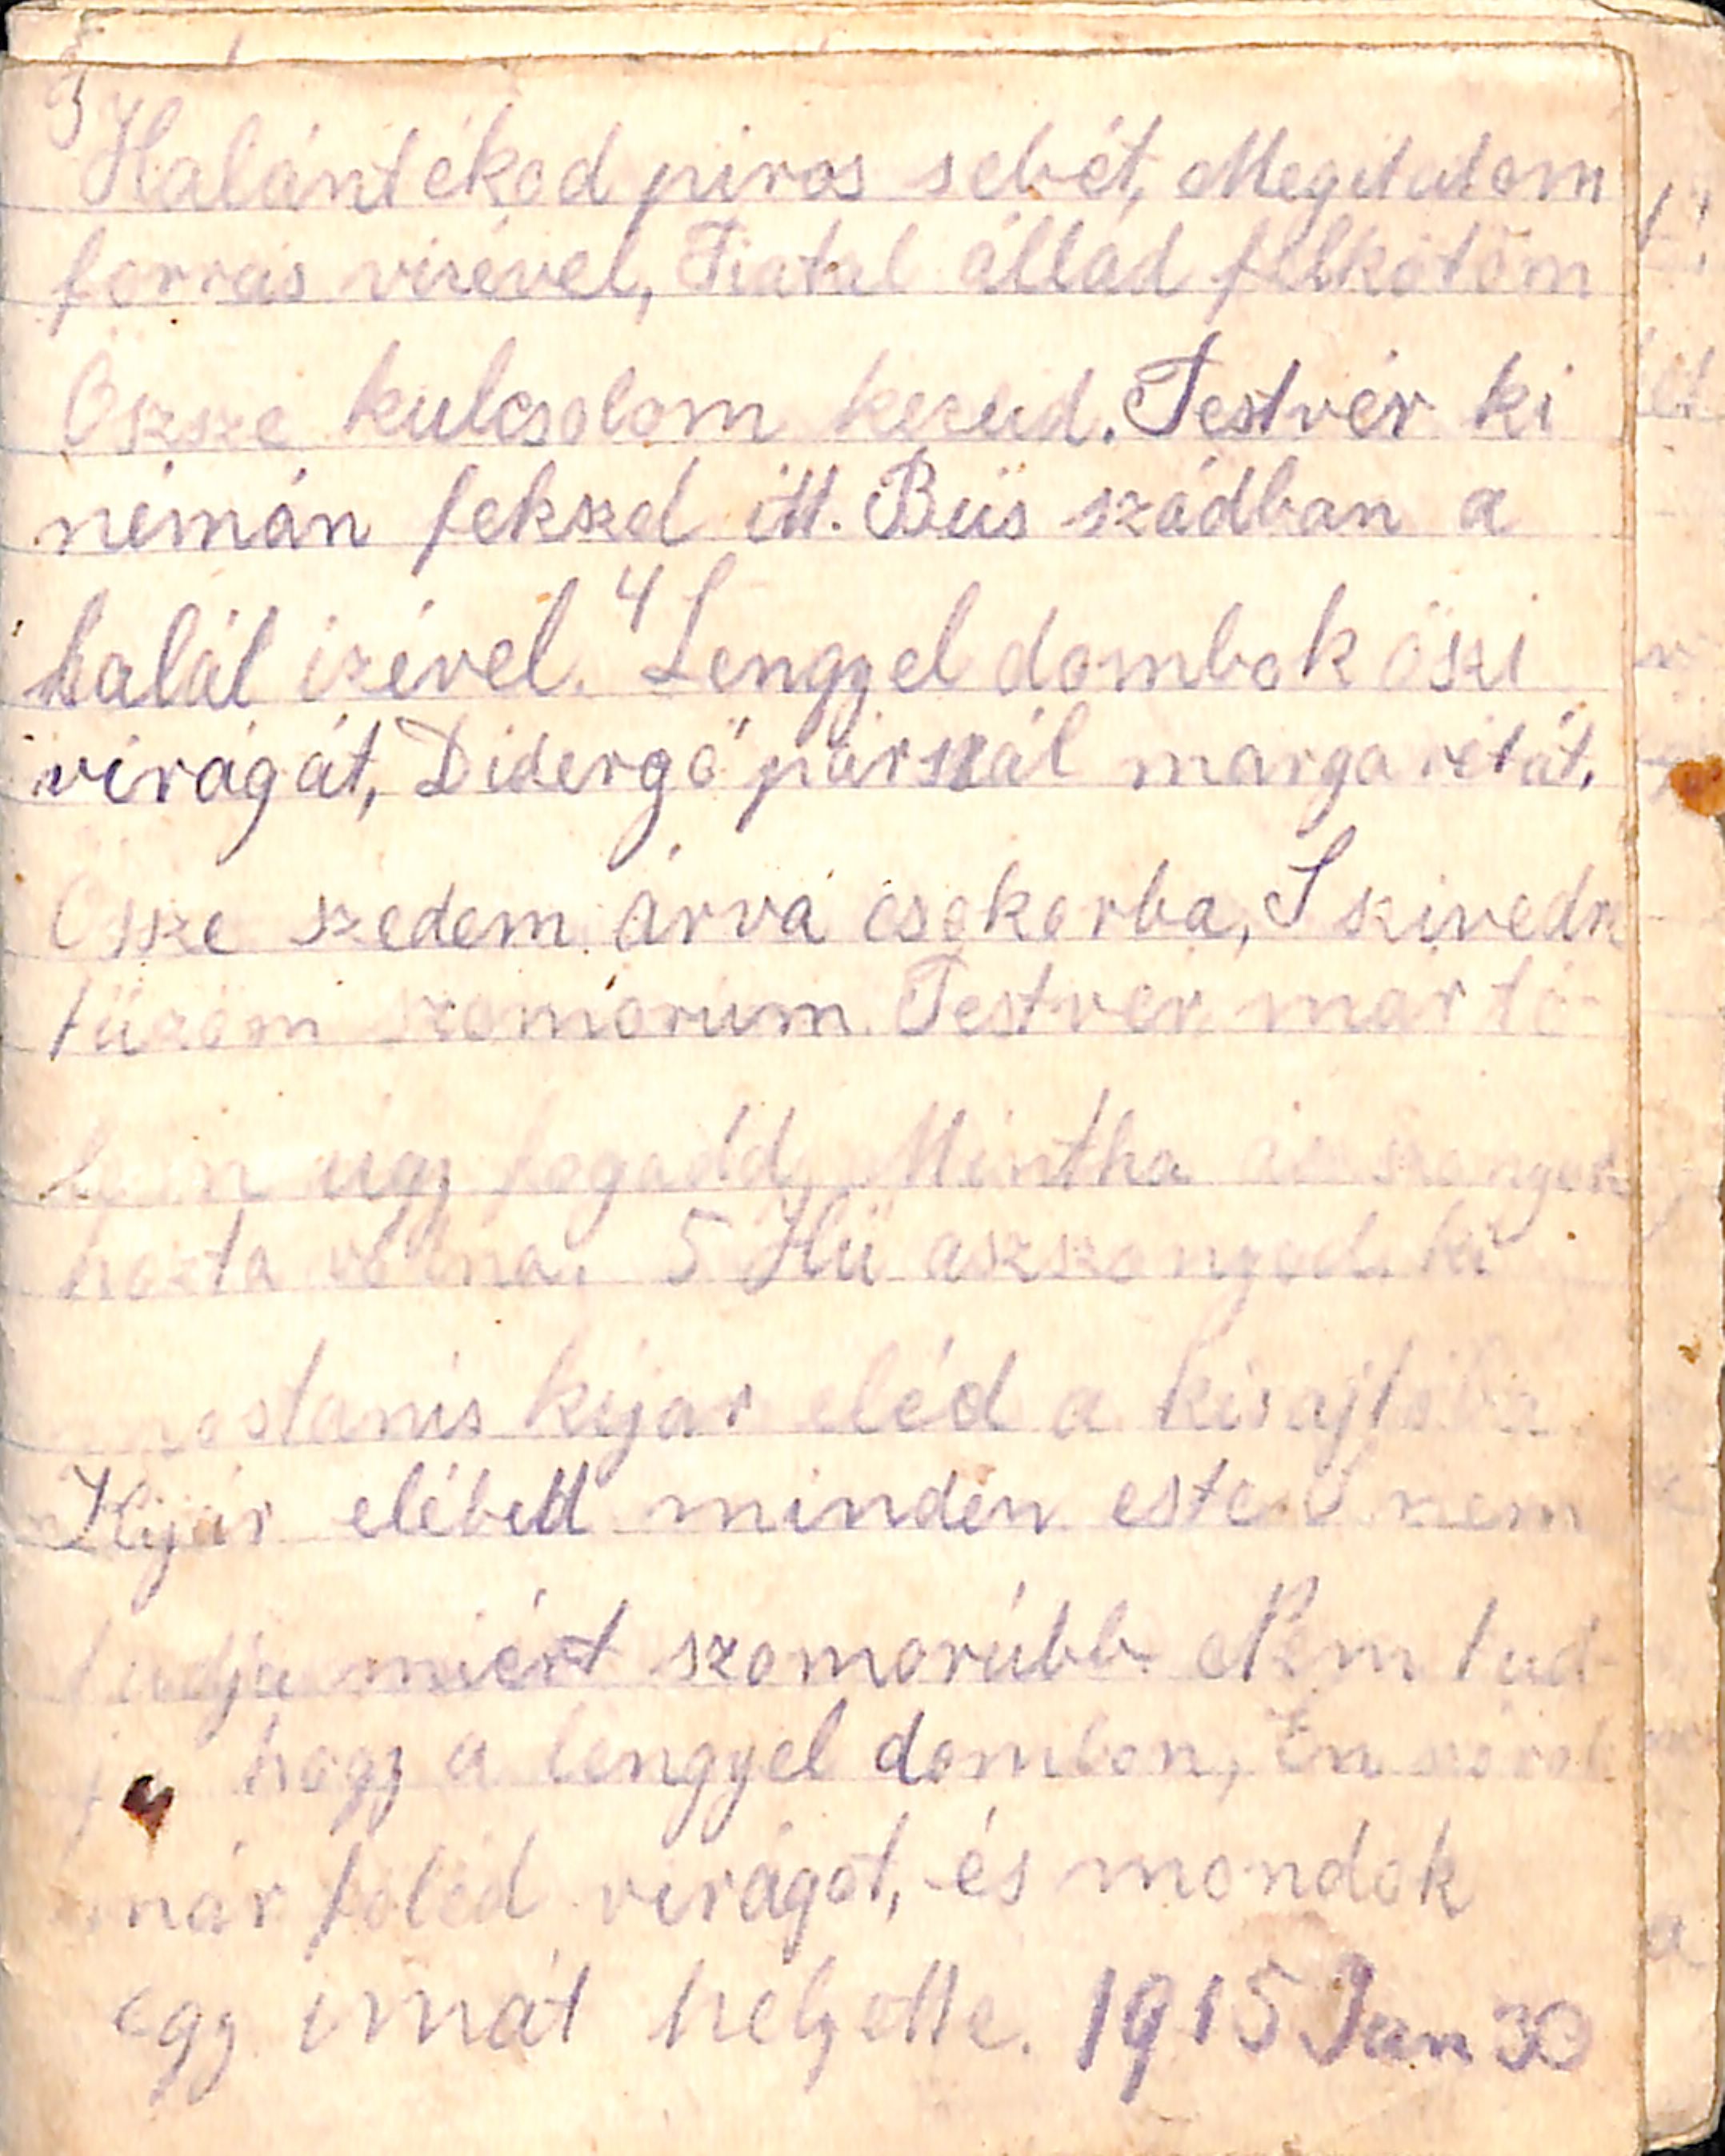 3
Halántékod piros sebét, Megitatom
forrás vizével, Fiatal állad felkötöm
Öszsze kulcsolom kezed. Testvér ki
némán fekszel itt. Bús szádban a
halál izével. 4 Lengyel dombok öszi
virágát, Didergő párszál margarétát,
Össze szedem árva csokorba, S szivedn
tüzöm szomorúm. Testvér már tő
lem ugy fogadd, Mintha
hozta volna. 5 Hü aszszonyod, ki
mostanis kijár eléd a kisajtóba
Kijár elébed minden este Ő nem
tudja miért szomorúbb Nem tud-
ja hogy a lengyel dombon, Én
már föléd virágot, és mondok
egy imát helyette. 1915 Jan 30